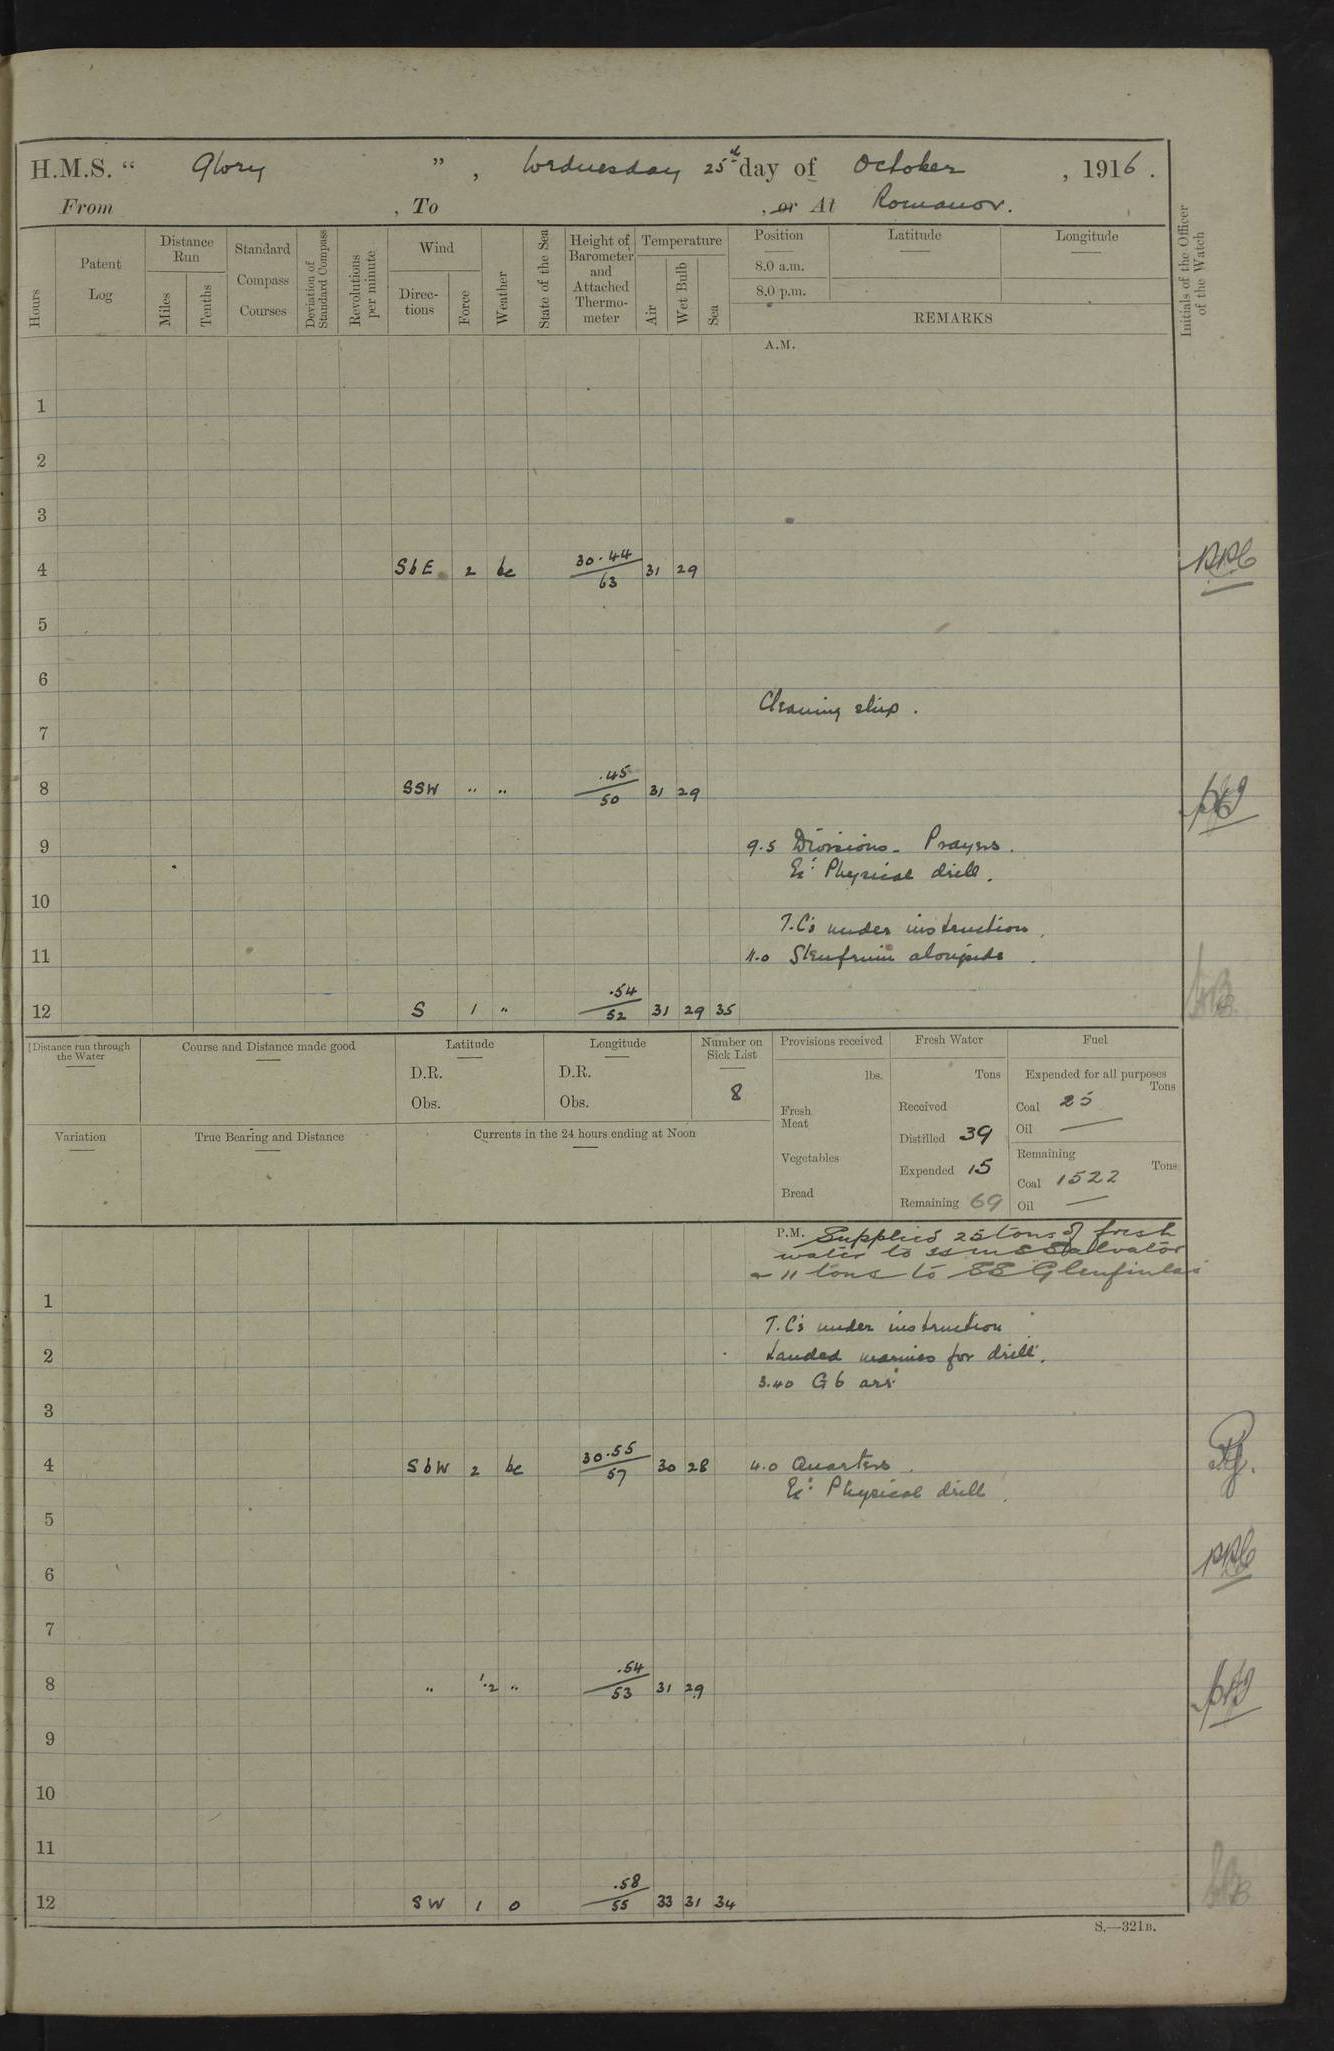 H.M.S. " Glory ", Wednesday 25th day of October, 1916.
From , To , or At Romanov.
Hours
Patent Log
Distance Run
Miles
Tenths
Standard Compass Courses
Deviation of Standard Compass
Revolutions per minute
Wind
Directions
Force
Weather
State of the Sea
Height of Barometer and Attached Thermometer
Temperature
Air
Wet Bulb
Sea
Position
8.0 a.m.
8.0 p.m.
Latitude
Longitude
REMARKS
Initials of the Officer of the Watch
A.M.
1
2
3
4 SbE 2 bc 30.44/63 31 29
5
6
Cleaning ship.
7
8 SSW " " .45/50 31 29
9 9.5 Divisions. Prayers.
Ex: Physical drill.
10
T.C's under instruction.
11 11.0 alongside.
12 S 1 " .54/52 31 29 35
Distance run through the Water
Course and Distance made good
Latitude
D.R.
Obs.
Longitude
D.R.
Obs.
Number on Sick List
8
Provisions received
lbs.
Fresh Meat
Vegetables
Bread
Fresh Water
Tons
Received
Distilled 39
Expended 15
Remaining 69
Fuel
Expended for all purposes
Tons
Coal 25
Oil —
Remaining
Tons
Coal 1522
Oil —
Variation
True Bearing and Distance
Currents in the 24 hours ending at Noon
P.M. Supplied 25 tons of fresh
water to Salvator
& 11 tons to SS Glenfinlas
1
T.C's under instruction
2 Landed marines for drill.
3.40 G6 arr.
3
4 SbW 2 bc 30.55/57 30 28 4.0 Quarters.
Ex: Physical drill.
5
6
7
8 " 1.2 " .54/53 31 29
9
10
11
12 SW 1 o .58/55 33 31 34
S.—321B.